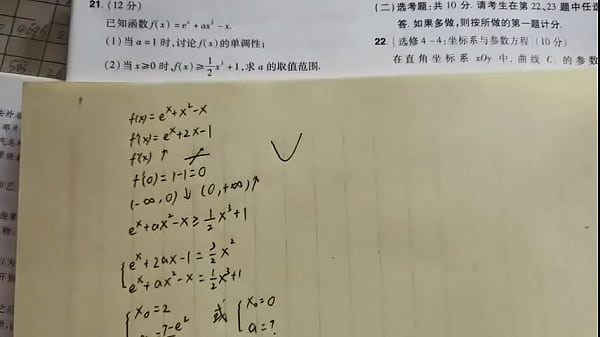 21. (12分)
已知函数f(x)=eˣ+ax²-x.
(1)当a=1时,讨论f(x)的单调性;
(2)当x≥0时,f(x)≥1/2x³+1,求a的取值范围.
(二)选考题:共10分.请考生在第22、23题中任
答.如果多做,则按所做的第一题计分.
22.[选修4-4:坐标系与参数方程](10分)
在直角坐标系xOy中,曲线C 的参数
f(x)=eˣ+x²-x
f'(x)=eˣ+2x-1
f'(x)↑
f'(0)=1-1=0
(-∞,0)↓ (0,+∞)↑
eˣ+ax²-x≥1/2x³+1
{eˣ+2ax-1=3/2x²
eˣ+ax²-x=1/2x³+1
{x₀=2 或 {x₀=0
7-e² a=?